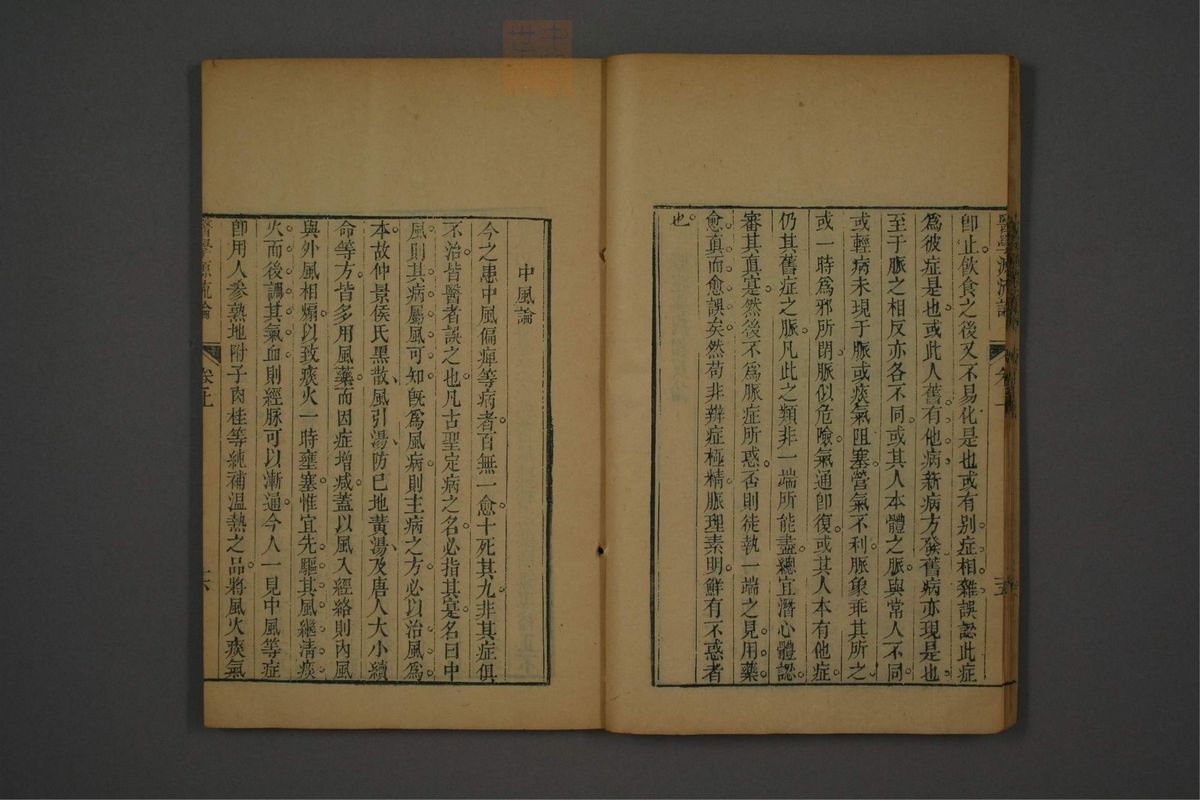 卽止飮食之後又不易化是也或有别症相雜誤認此症
爲彼症是也或此人舊有他病新病方發舊病亦現是也
至于脈之相反亦各不同或其人本體之脈與常人不同
或輕病未現于脈或痰氣阻塞營氣不利脈象乖其所之
或一時爲邪所閉脈似危險氣通卽復或其人本有他症
仍其舊症之脈凡此之類非一端所能盡總宜潛心體認
審其眞寔然後不爲脈症所惑否則徒執一端之見用藥
愈眞而愈誤矣然苟非辨症極精脈理素明鮮有不惑者
也
中風論
今之患中風偏痺等病者百無一愈十死其九非其症俱
不治皆醫者誤之也凡古聖定病之名必指其寔名曰中
風則其病屬風可知旣爲風病則主病之方必以治風爲
本故仲景侯氏黑散風引湯防已地黃湯及唐人大小續
命等方皆多用風藥而因症增減蓋以風入經絡則內風
與外風相煽以致痰火一時壅塞惟宜先驅其風繼淸痰
火而後調其氣血則經脈可以漸通今人一見中風等症
卽用人參熟地附子肉桂等純補温熱之品將風火痰氣
醫學源流論
卷上